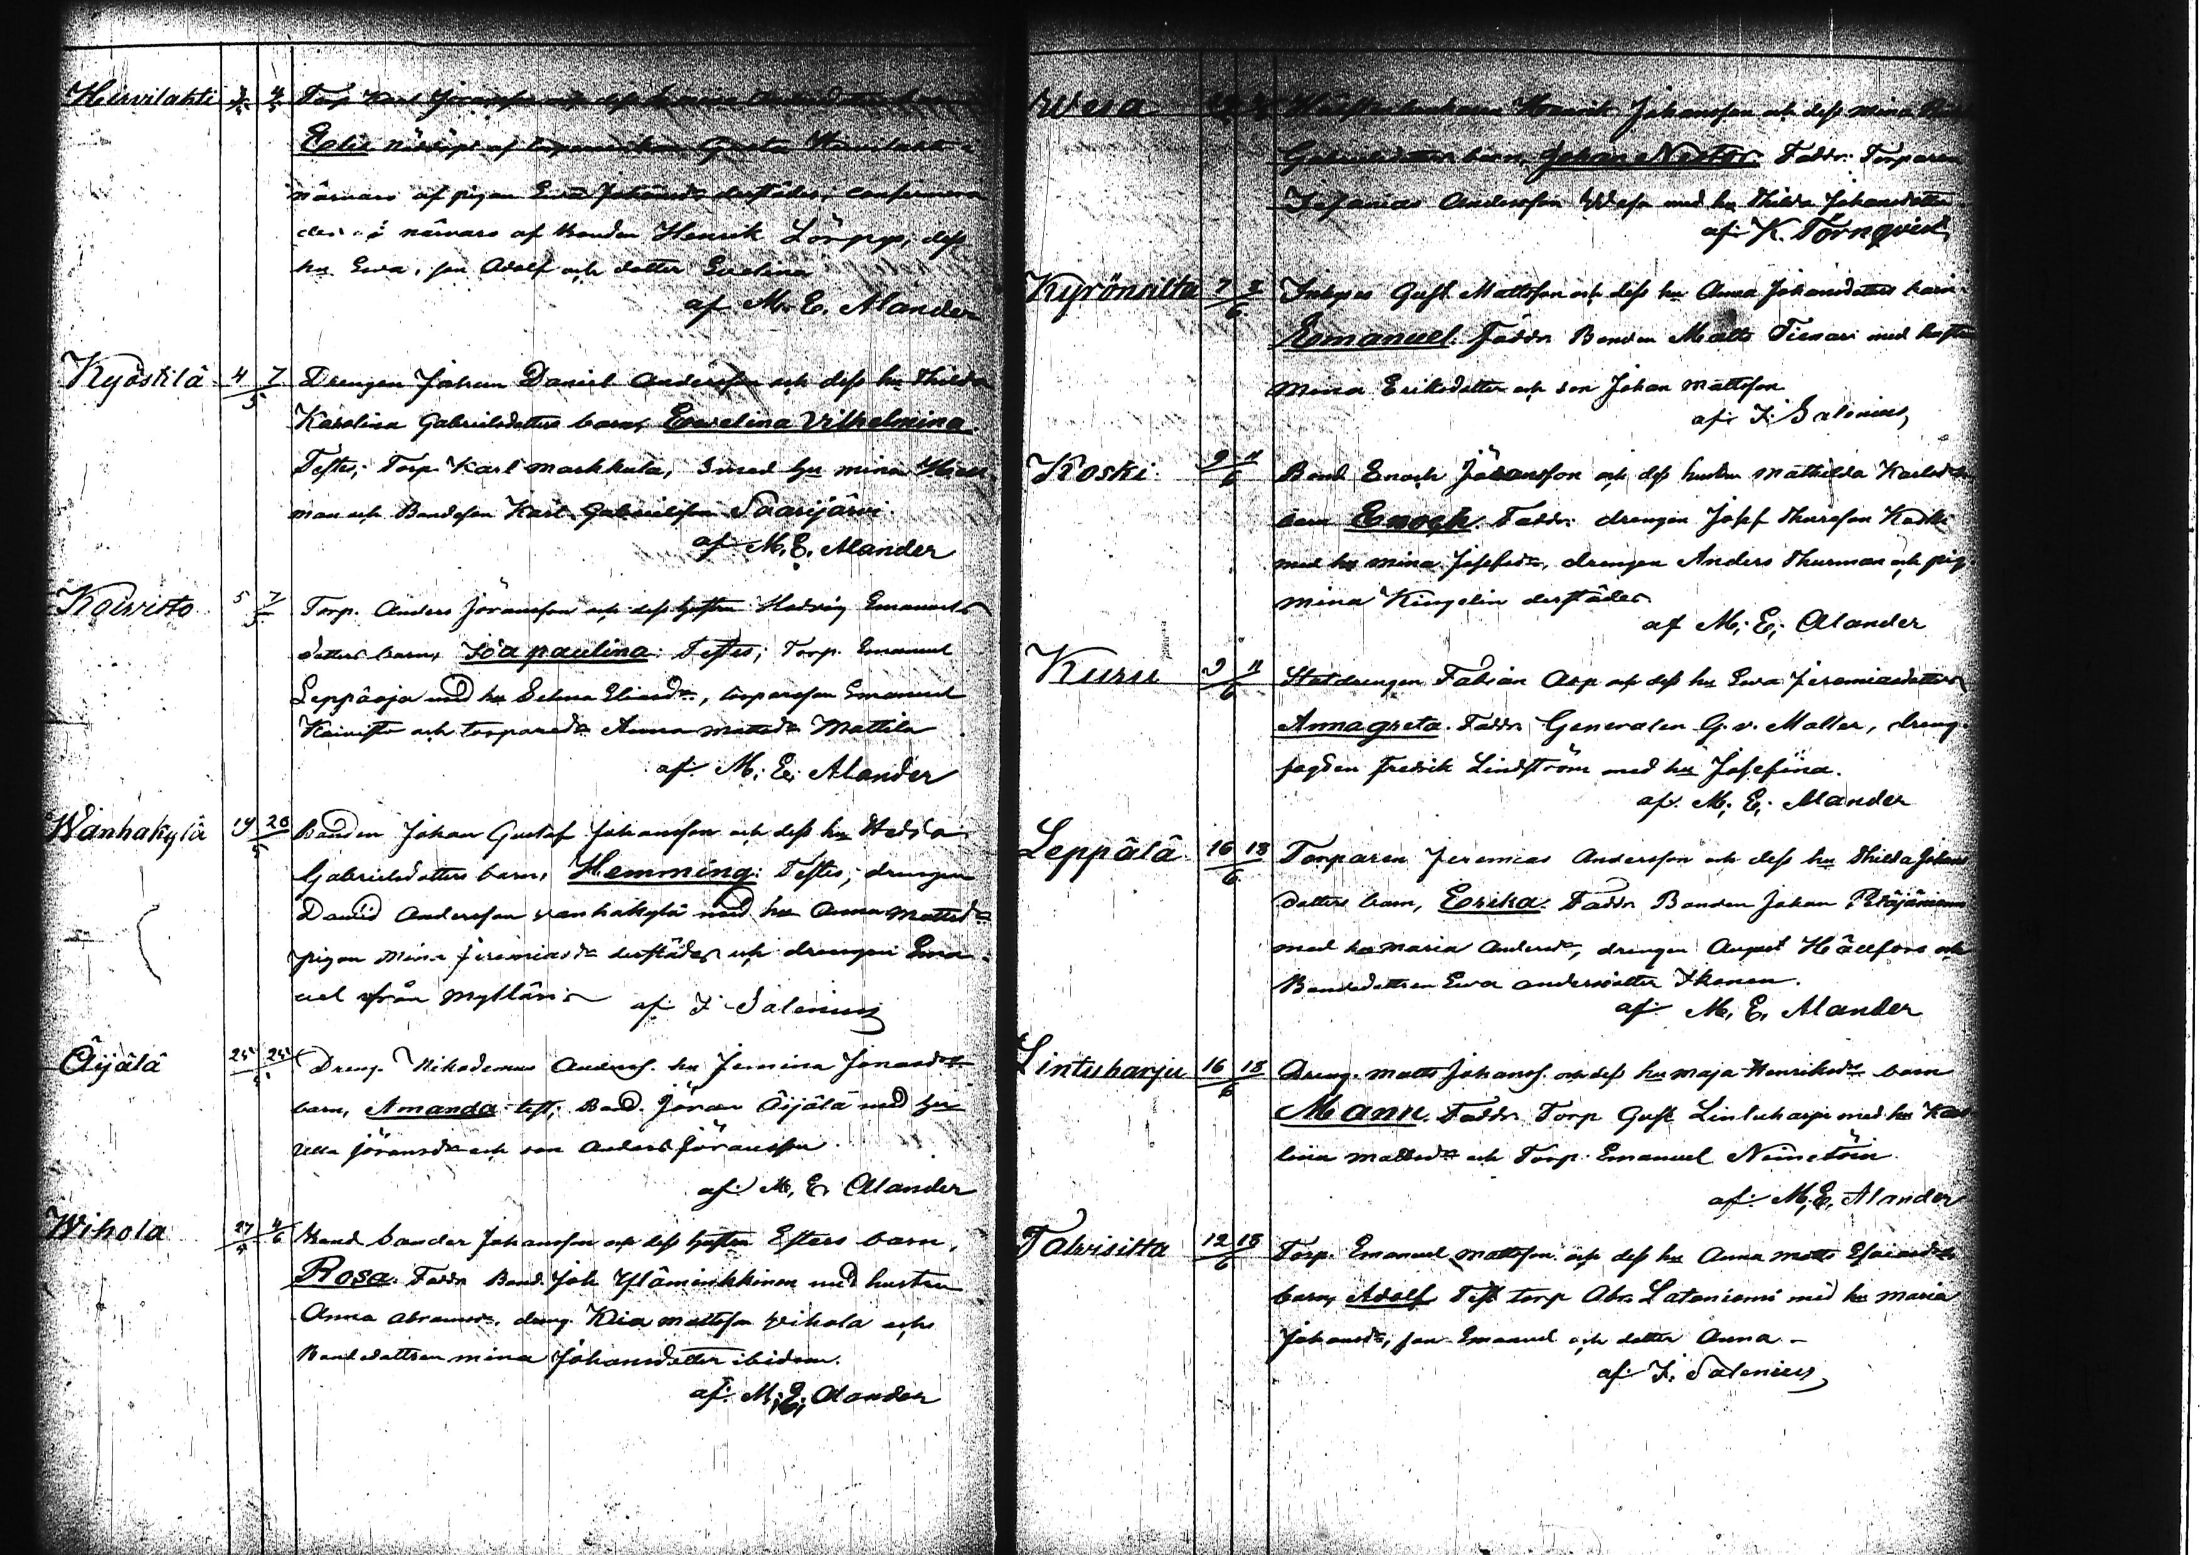 Hirvilahti 3/5 4/5 Torp Karl Göransson och dess hu maria
Eelis nöddöpt af Greta Hirvilahti i
närvaro af pigan Ewa derstädes; confirmera
des i närvaro af Bonden Henrik Löppi, dess
hu Ewa, son Adolf och dotter Evelina
af M. E. Alander
Kyöstilä 4 7/5 Drengen Johan Daniel Andersson och dess hu Thilda
Karolina Gabrielsdotters barn, Ewelina Vilhelmina
Testes; Torp. Karl markkula, Smed hu mina
man och Bondeson Karl Gabrielsson Saarijärvi.
af M. E. Alander
Koivisto 5 7/5 Torp. Anders Göransson och dess hustru Hedvig Emanuels
dotters barn, Ida paulina: Testes; Torp. Emanuel
Leppäoja med hu Selma Eliasdr, torparson Emanuel
Koivisto och torparedr Anna mattsdr Mattila
af M. E. Alander
Wanhakylä 19 20/5 Bonden Johan Gustaf Johansson och dess hu Hedda
Gabrielsdotters barn, Hemming: Testes; drengen
David Andersson vanhakylä med hu Anna Mattsdr
pigan Mina Jeremiasdr derstädes och drengen Ema
uel från Mylläri
af F. Salenius
Äijälä 25 25/5 Dreng. Nikodemus Anderss. hu Jemina Jonasdr
barn, Amanda test; Bond. Jöran Äijälä med hu
Ulla Jöransdr och son Anders Jöransson.
af M. E. Alander
Wihola 27/5 4/6 Bond Sander Johansson och dess hustru Esters barn,
Rosa. Faddr. Bond. Joh Yläminkkinen med hustru
Anna Abramsdr, dreng. mattsson vihola och
Bondedottren mina Johansdotter ibidem.
af M. E. Alander
Wesa Henrik Johansson och dess mina
Gabrielsdotters barn, Johan Nestor. Faddr: Torparen
Andersson Wesa med hu Thilda Johansdotter
af K. Törnqvist
Kyrönsilta 7 8/6 Gust. Mattsson och dess hu Anna Johansdotters barn
Emanuel. Faddr. Bonden Matts Tienari med hustru
Mina Eriksdotter och son Johan mattsson
af F. Salenius,
Koski 9 11/6 Bond Enoch Jöransson och dess hustru Mathilda Karlsdr
barn Enoch. Faddr: drengen Josef Thuresson Koski
med hu mina Josefsdr, drengen Anders Thurman och pig.
mina Kingelin derstädes
af M. E. Alander
Kuru 9 11/6 Statdrengen Fabian Asp och dess hu Ewa Jeremiasdotters
Annagreta. Faddr. Generalen G. v. Maller, dreng
fogden fredrik Lindström med hu Josefina.
af M. E. Alander
Leppälä 16 18/6 Torparen Jeremias Andersson och dess hu Thilda Johans
dotters barn, Erika. Faddr. Bonden Johan
med hu maria Andersdr, drengen August Hällfors och
Bondedottren Ewa andersdotter Ikonen.
af M. E. Alander
Lintuharju 16 18/6 Dreng. matts Johanss. och dess hu maja Henriksdr barn
Mann. Faddr. Torp Gust Lintuharju med hu Karo
lina mattsdr och Torp. Emanuel Niinistöin
af M. E. Alander
Talvisilta 12 18/6 Torp. Emanuel mattsson och dess hu Anna matts Esaiasdr
barn, Adolf Test torp Abr. Lataniemi med hu maria
Johansdr, son Emanuel och dotter Anna.
af F. Salenius,